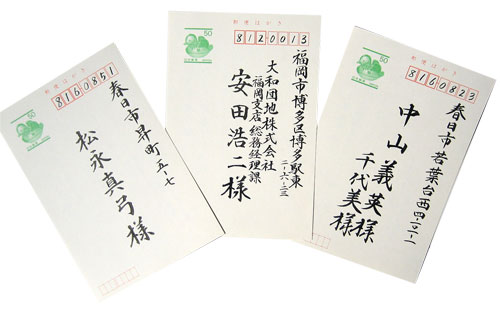 50
郵便はがき
8160851
春日市昇町五-七
松永真弓様
50
郵便はがき
8120013
福岡市博多区博多駅東
二-六-二三
大和団地株式会社
福岡支店 総務経理課
安田浩二様
50
郵便はがき
8160823
春日市若葉台西四-二-一
中山義英様
千代美様